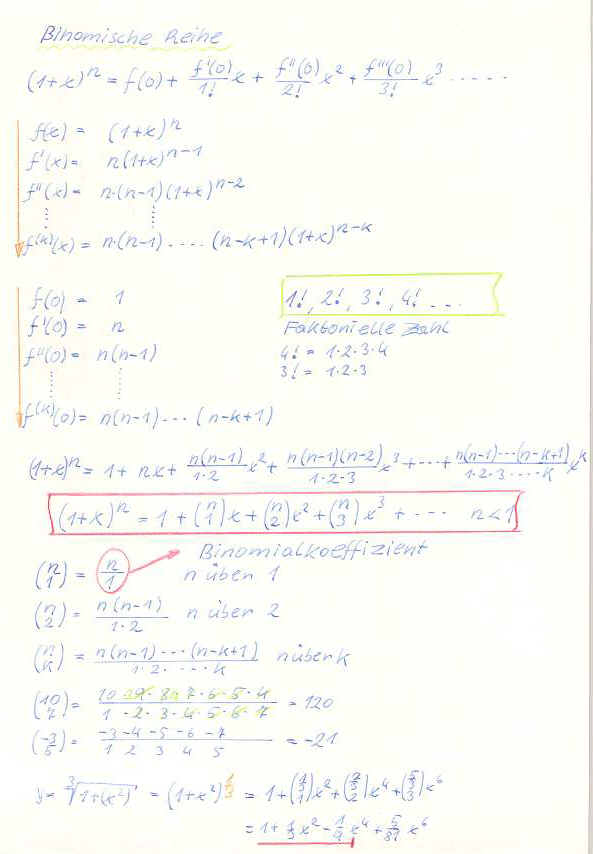 Binomische Reihe
(1+x)^n = f(0) + f'(0)/1! x + f''(0)/2! x² + f'''(0)/3! x³ .....
f(x) = (1+x)^n
f'(x) = n(1+x)^n-1
f''(x) = n·(n-1)(1+x)^n-2
f^(k)(x) = n·(n-1)....(n-k+1)(1+x)^n-k
f(0) = 1
f'(0) = n
f''(0) = n(n-1)
f^(k)(0) = n(n-1)...(n-k+1)
1!, 2!, 3!, 4! ...
Faktorielle Zahl
4! = 1·2·3·4
3! = 1·2·3
(1+x)^n = 1 + nx + n(n-1)/1·2 x² + n(n-1)(n-2)/1·2·3 x³ + ... + n(n-1)...(n-k+1)/1·2·3....k x^k
(1+x)^n = 1 + (n 1)x + (n 2)x² + (n 3)x³ + .... n<1
Binomialkoeffizient
(n 1) = n/1 n über 1
(n 2) = n(n-1)/1·2 n über 2
(n k) = n(n-1)...(n-k+1)/1·2·...·k n über k
(10 7) = 10·9·8·7·6·5·4/1·2·3·4·5·6·7 = 120
(-3 5) = -3 -4 -5 -6 -7/1 2 3 4 5 = -21
y = ³√1+(x²) = (1+x²)^1/3 = 1 + (1/3 1)x² + (1/3 2)x⁴ + (1/3 3)x⁶
= 1 + 1/3 x² - 1/9 x⁴ + 5/81 x⁶